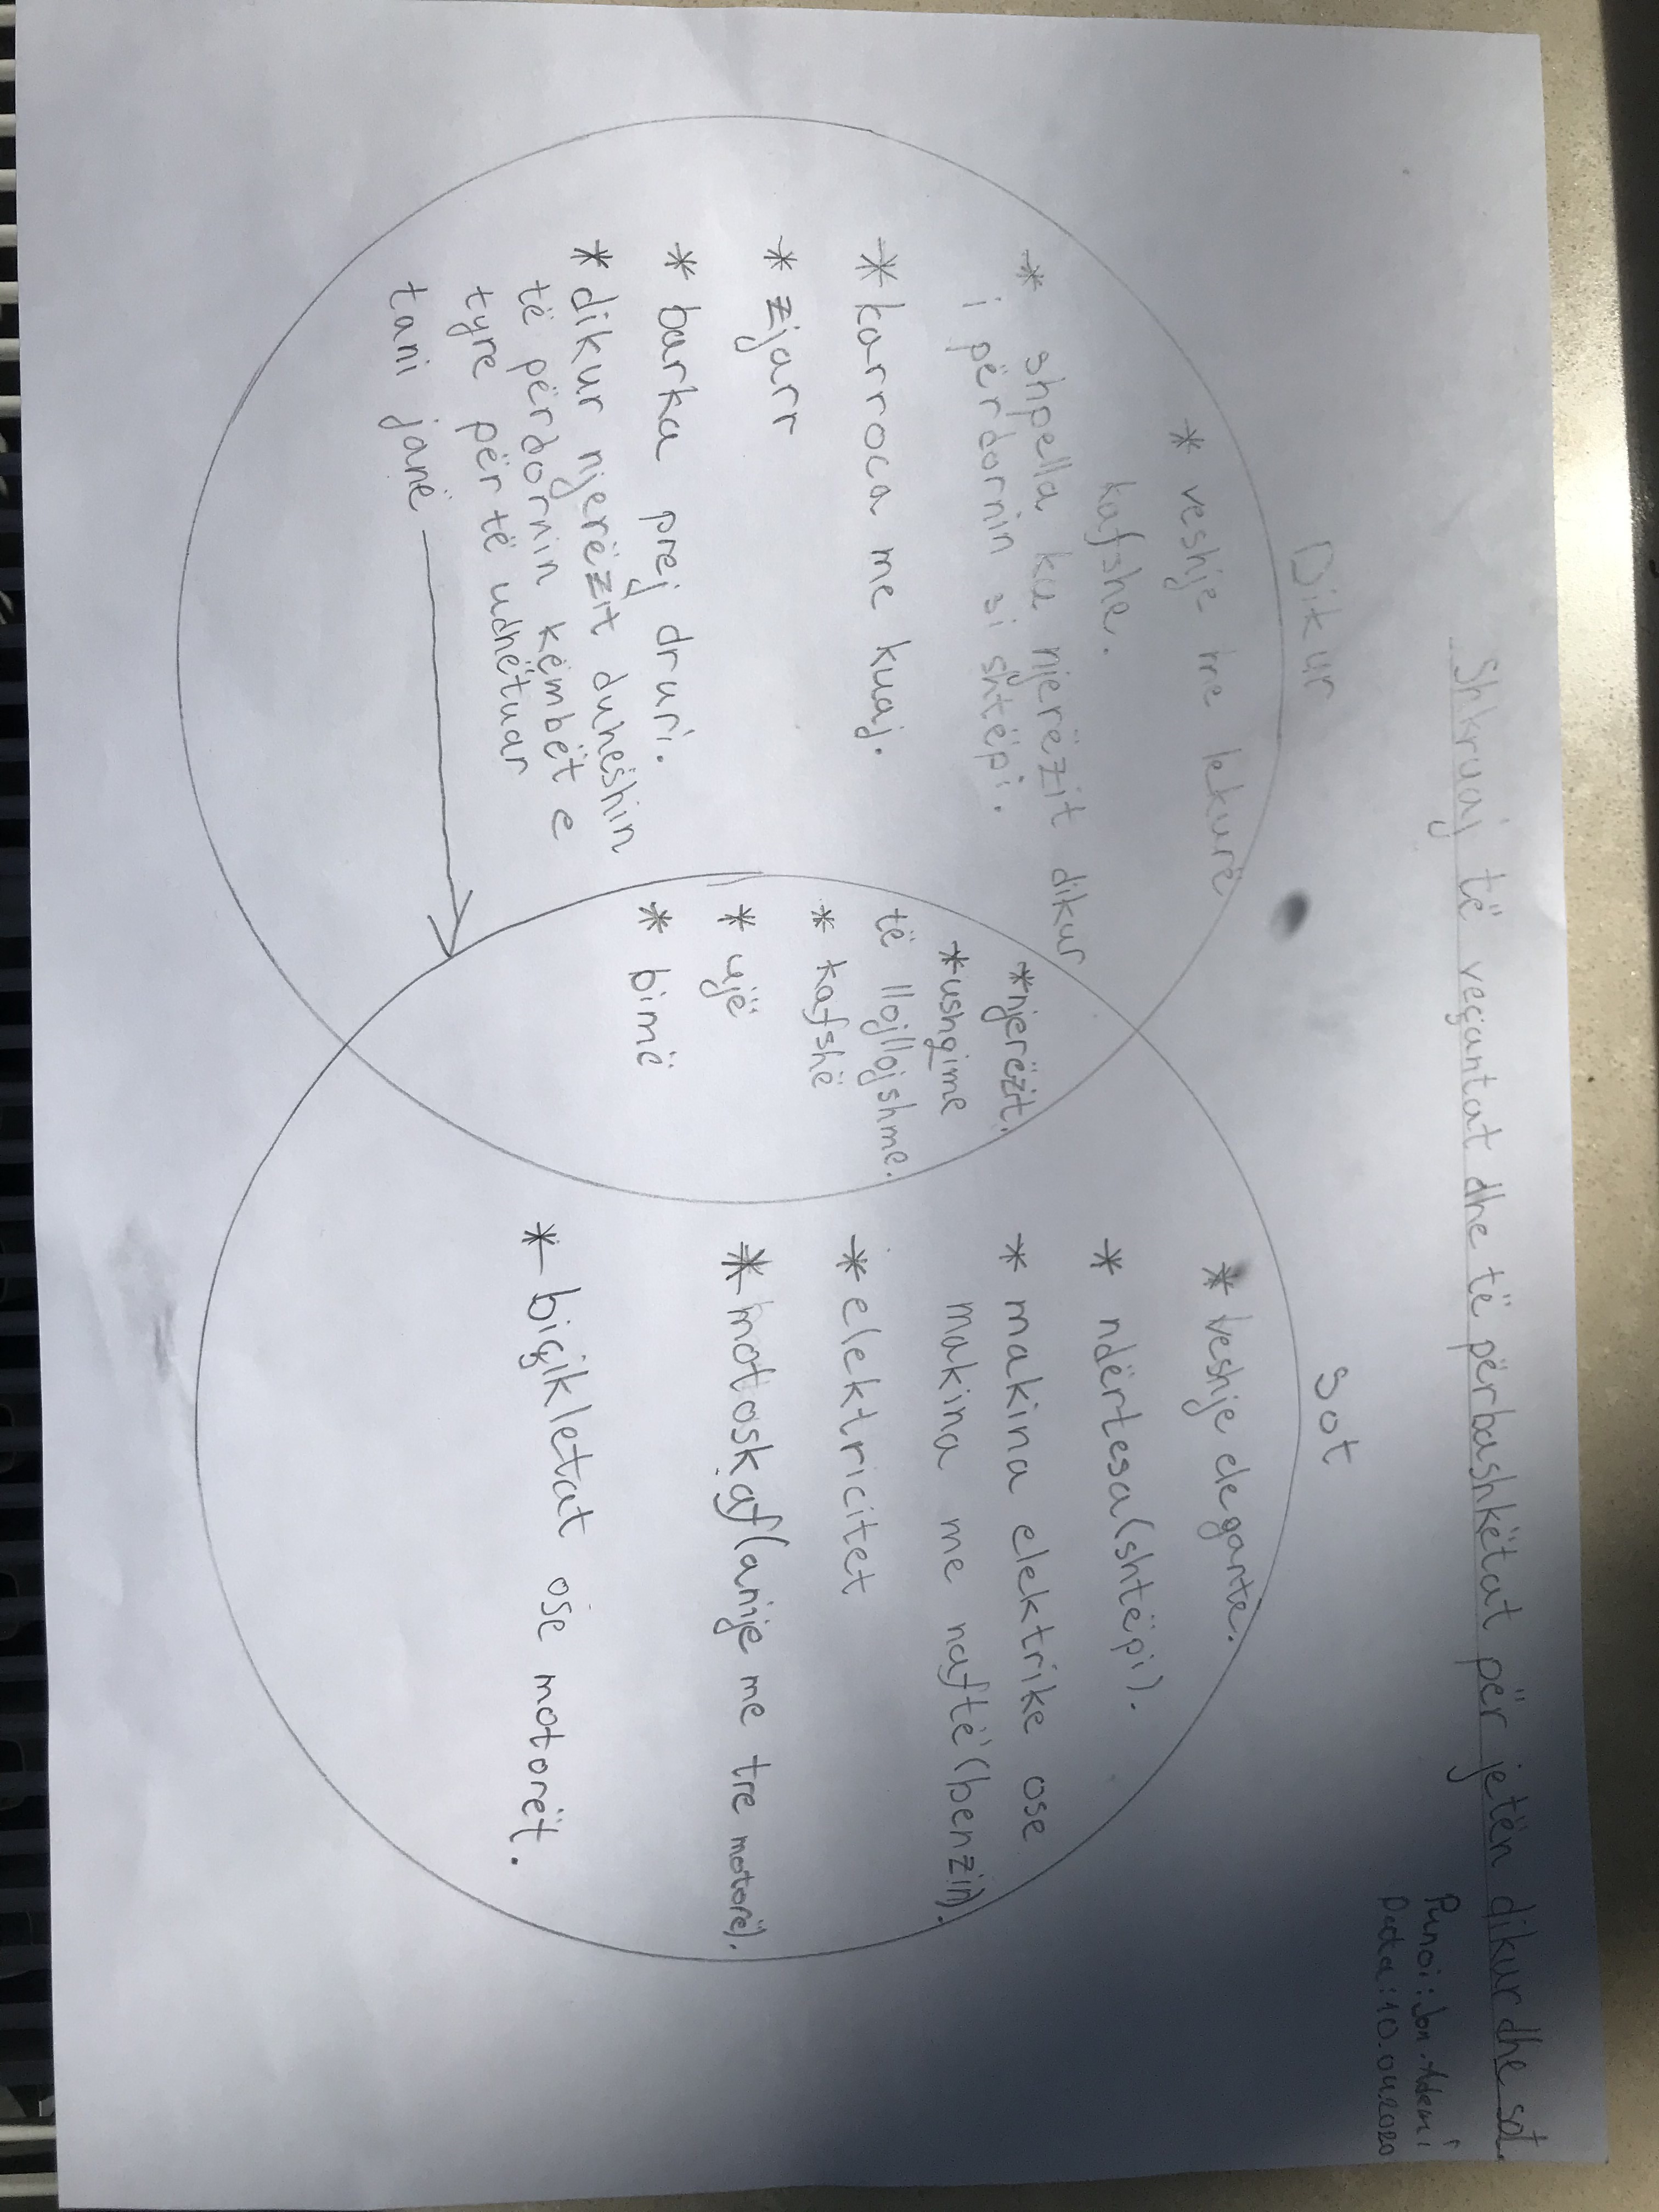 Shkruaj të veçantat dhe të përbashkëtat për jetën dikur dhe sot.
Punoi: Jon Ademi
Data: 10.04.2020
Dikur
* veshje me lekurë
kafshe.
* shpella ku njerëzit dikur
i përdornin si shtëpi.
* karroca me kuaj.
* zjarr
* barka prej druri.
* dikur njerëzit duheshin
të përdornin këmbët e
tyre për të udhëtuar
tani janë
* njerëzit.
* ushqime
të llojllojshme.
* kafshë
* ujë
* bimë
Sot
* veshje elegante.
* ndërtesa (shtëpi).
* makina elektrike ose
makina me naftë (benzin).
* elektricitet
* motoskaf (anije me tre motorë).
* biçikletat ose motorët.